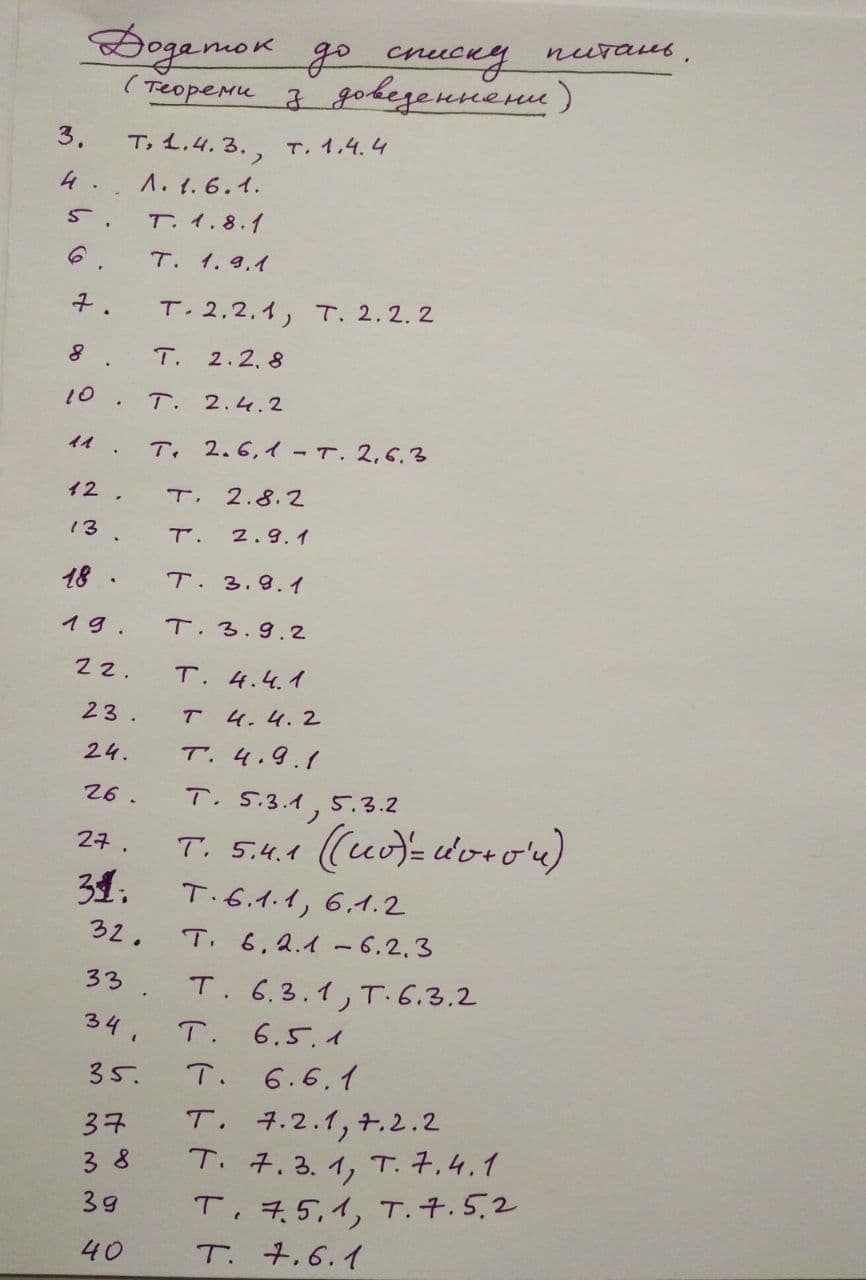 Додаток до списку питань.
(теореми з доведеннями)
3. Т. 1.4.3., т. 1.4.4
4. Л. 1.6.1.
5. Т. 1.8.1
6. Т. 1.9.1
7. Т. 2.2.1, Т. 2.2.2
8. Т. 2.2.8
10. Т. 2.4.2
11. Т. 2.6.1 – Т. 2.6.3
12. Т. 2.8.2
13. Т. 2.9.1
18. Т. 3.9.1
19. Т. 3.9.2
22. Т. 4.4.1
23. Т 4.4.2
24. Т. 4.9.1
26. Т. 5.3.1, 5.3.2
27. Т. 5.4.1 ((uv)'= u'v + v'u)
31. Т. 6.1.1, 6.1.2
32. Т. 6.2.1 – 6.2.3
33. Т. 6.3.1, Т. 6.3.2
34. Т. 6.5.1
35. Т. 6.6.1
37 Т. 7.2.1, 7.2.2
38 Т. 7.3.1, Т. 7.4.1
39 Т. 7.5.1, Т. 7.5.2
40 Т. 7.6.1